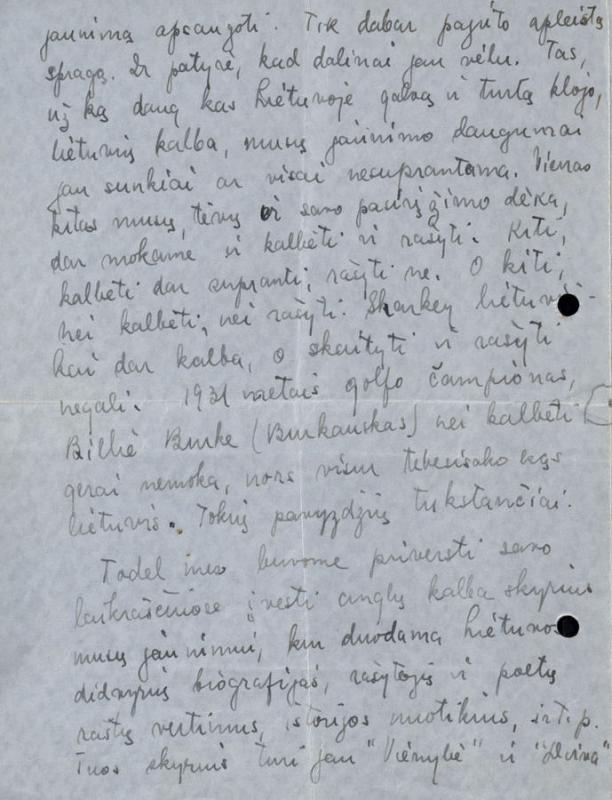 jaunimą apsaugoti. Tik dabar pajuto apleistą
spragą. Ir patyrė, kad dalinai jau vėlu. Tas,
už ką daug kas Lietuvoje galvą ir turtą klojo,
lietuvių kalba, musų jaunimo daugumai
jau sunkiai ar visai nesuprantama. Vienas
kitas musų, tėvų ir savo pasiryžimo dėka,
dar mokame ir kalbėti ir rašyti. Kiti,
kalbėti dar supranti, rašyti ne. O kiti,
nei kalbėti, nei rašyti. Sharkey lietuviš-
kai dar kalba, o skaityti ir rašyti
negali. 1931 metais golfo čampionas,
Billie Burke (Burkauskas) nei kalbėti
gerai nemoka, nors visur tebesisako kąs
lietuvis. Tokių pavyzdžių tukstančiai.
Todel mes buvome priversti savo
laikraščiuose įvesti anglų kalba skyrius
musų jaunimui, kur duodama Lietuvos
didvyrių biografijas, rašytojų ir poetų
raštų vertimus, istorijos nuotikius, ir t.p.
Tuos skyrius turi jau "Vienybė" ir "Dirva"